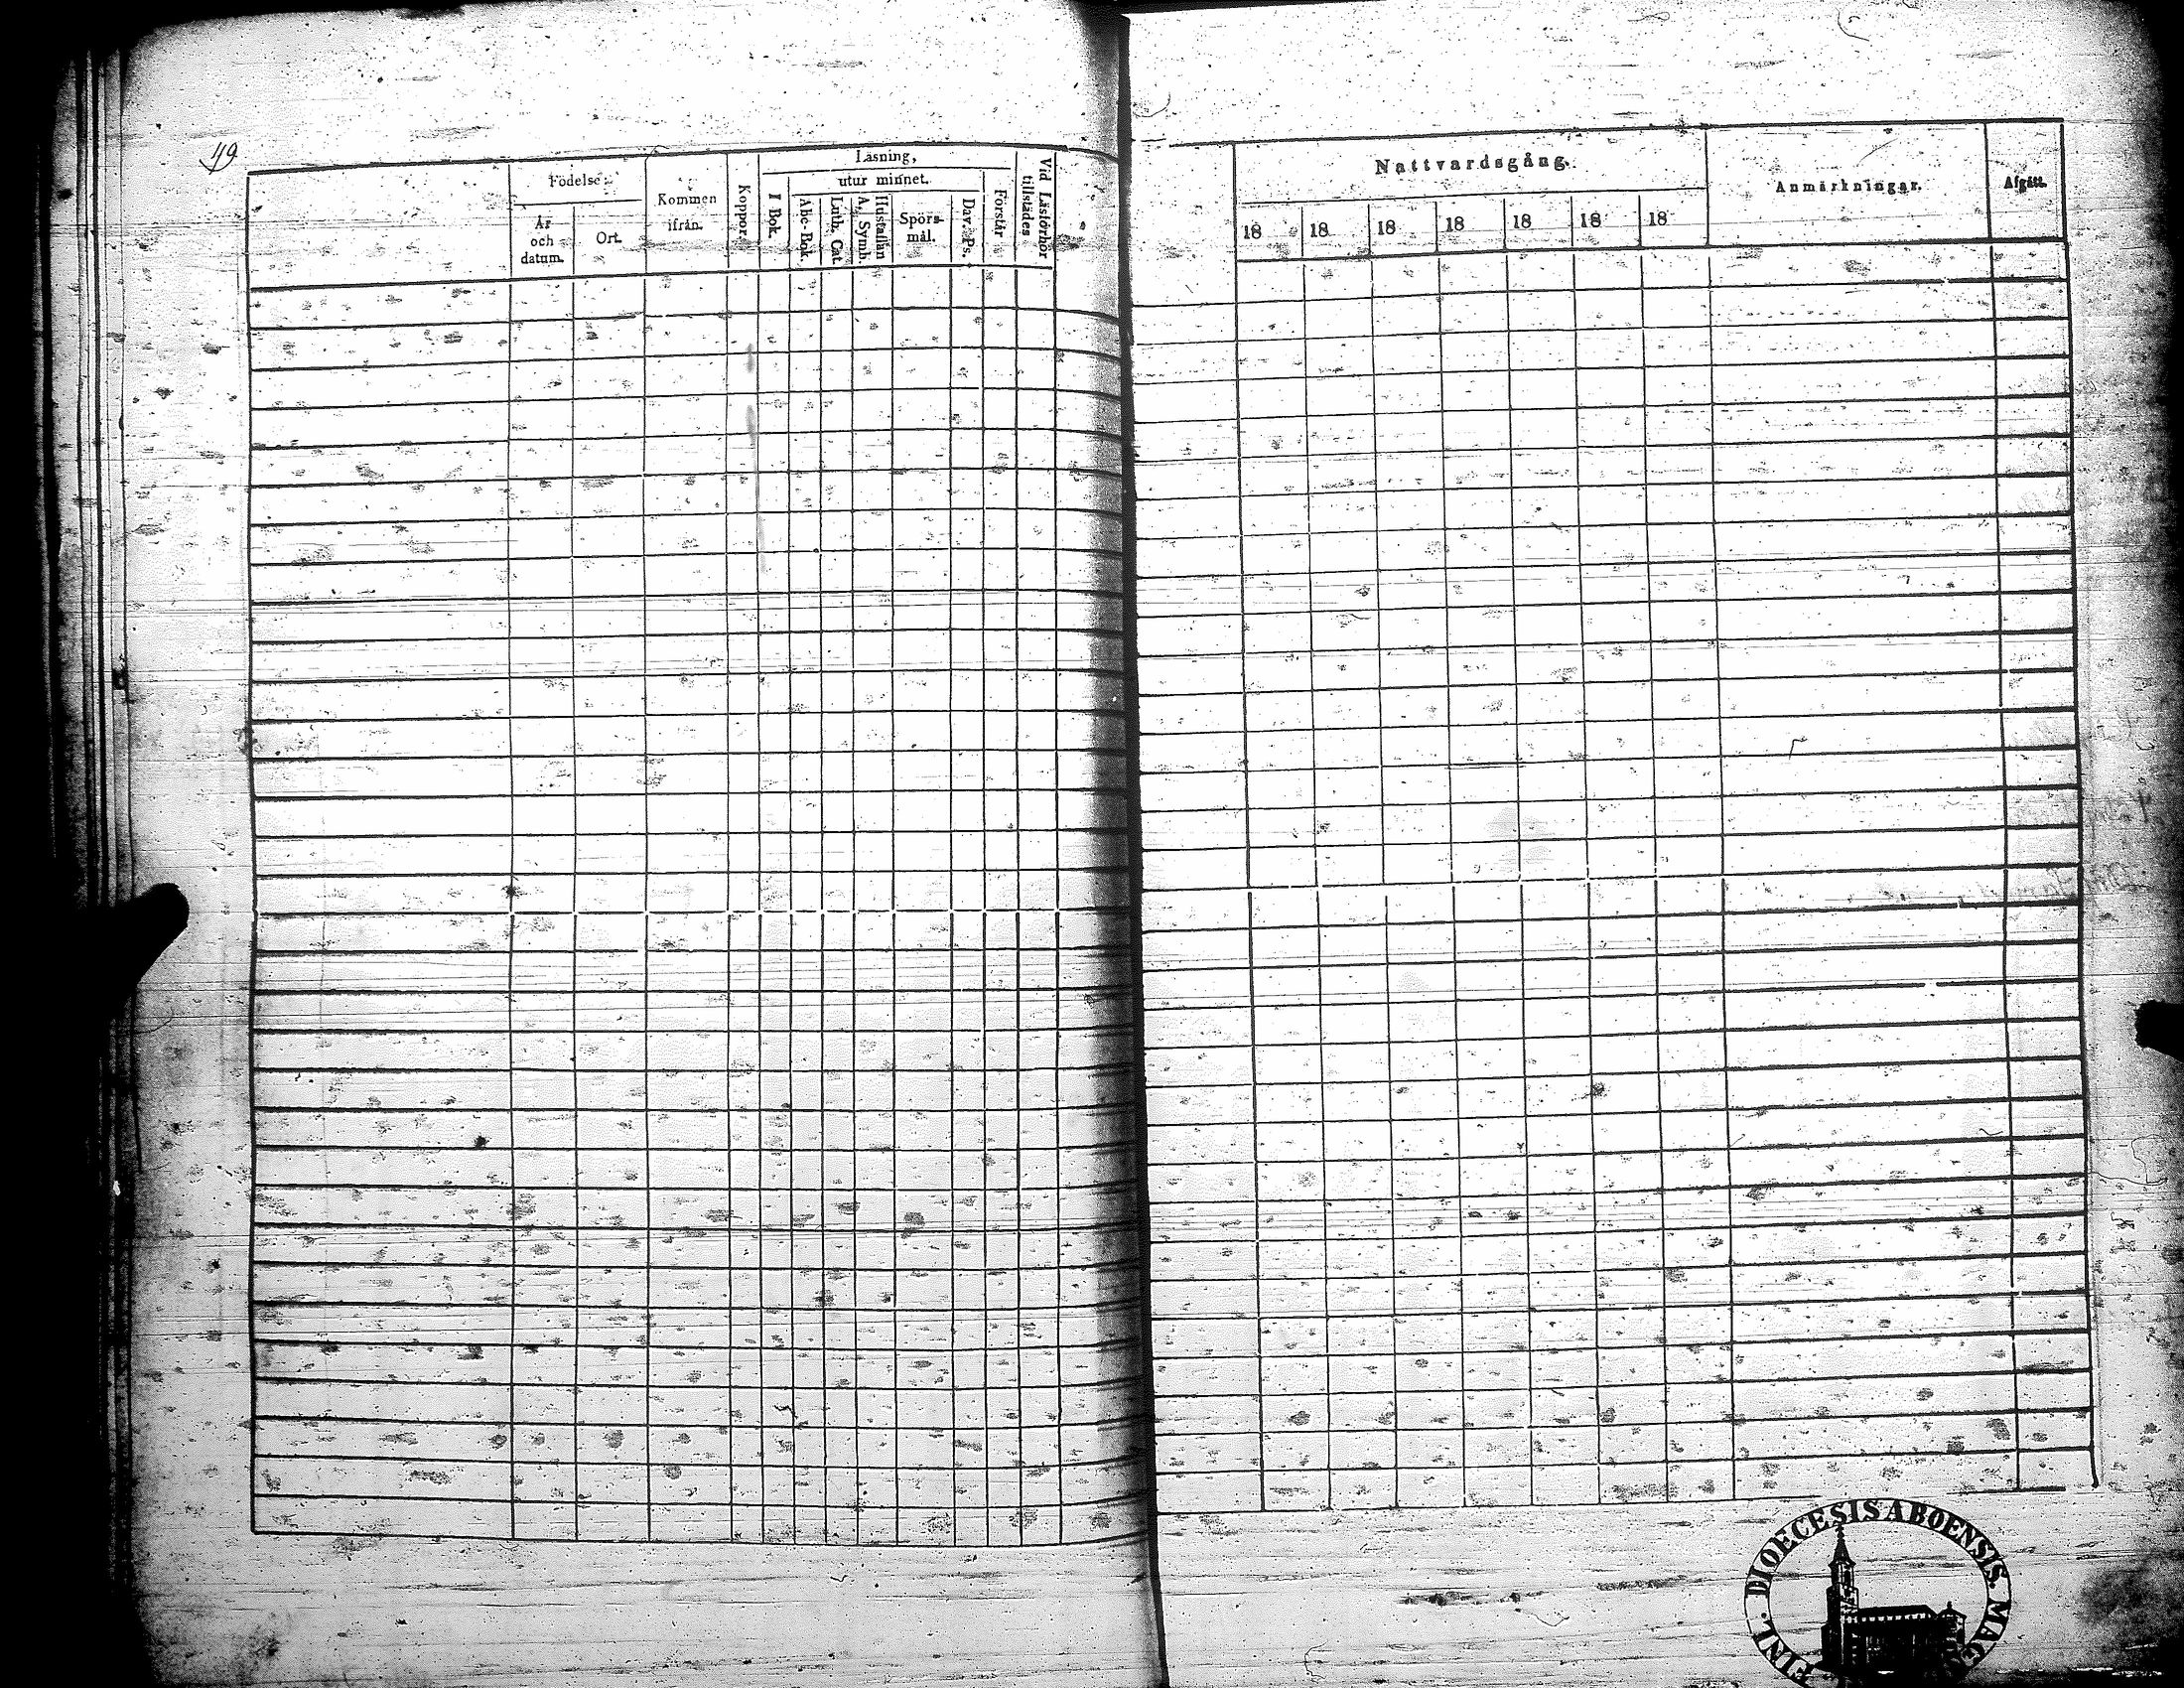 49
Läsning,
Födelse
utur minnet.
Kommen
ifrån.
År
och
datum.
Ort.
Koppor.
I Bok.
Abc-Bok.
Luth. Cat.
Hustaflan
A. Symb.
Spörs-
mål.
Dav. Ps.
Förstår
Vid Läsförhör
tillstädes
Nattvardsgång.
Anmärkningar.
Afgått.
18 18 18 18 18 18 18
DIOECESIS ABOENSIS.